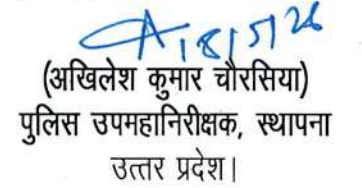 18/5/26
(अखिलेश कुमार चौरसिया)
पुलिस उपमहानिरीक्षक, स्थापना
उत्तर प्रदेश।